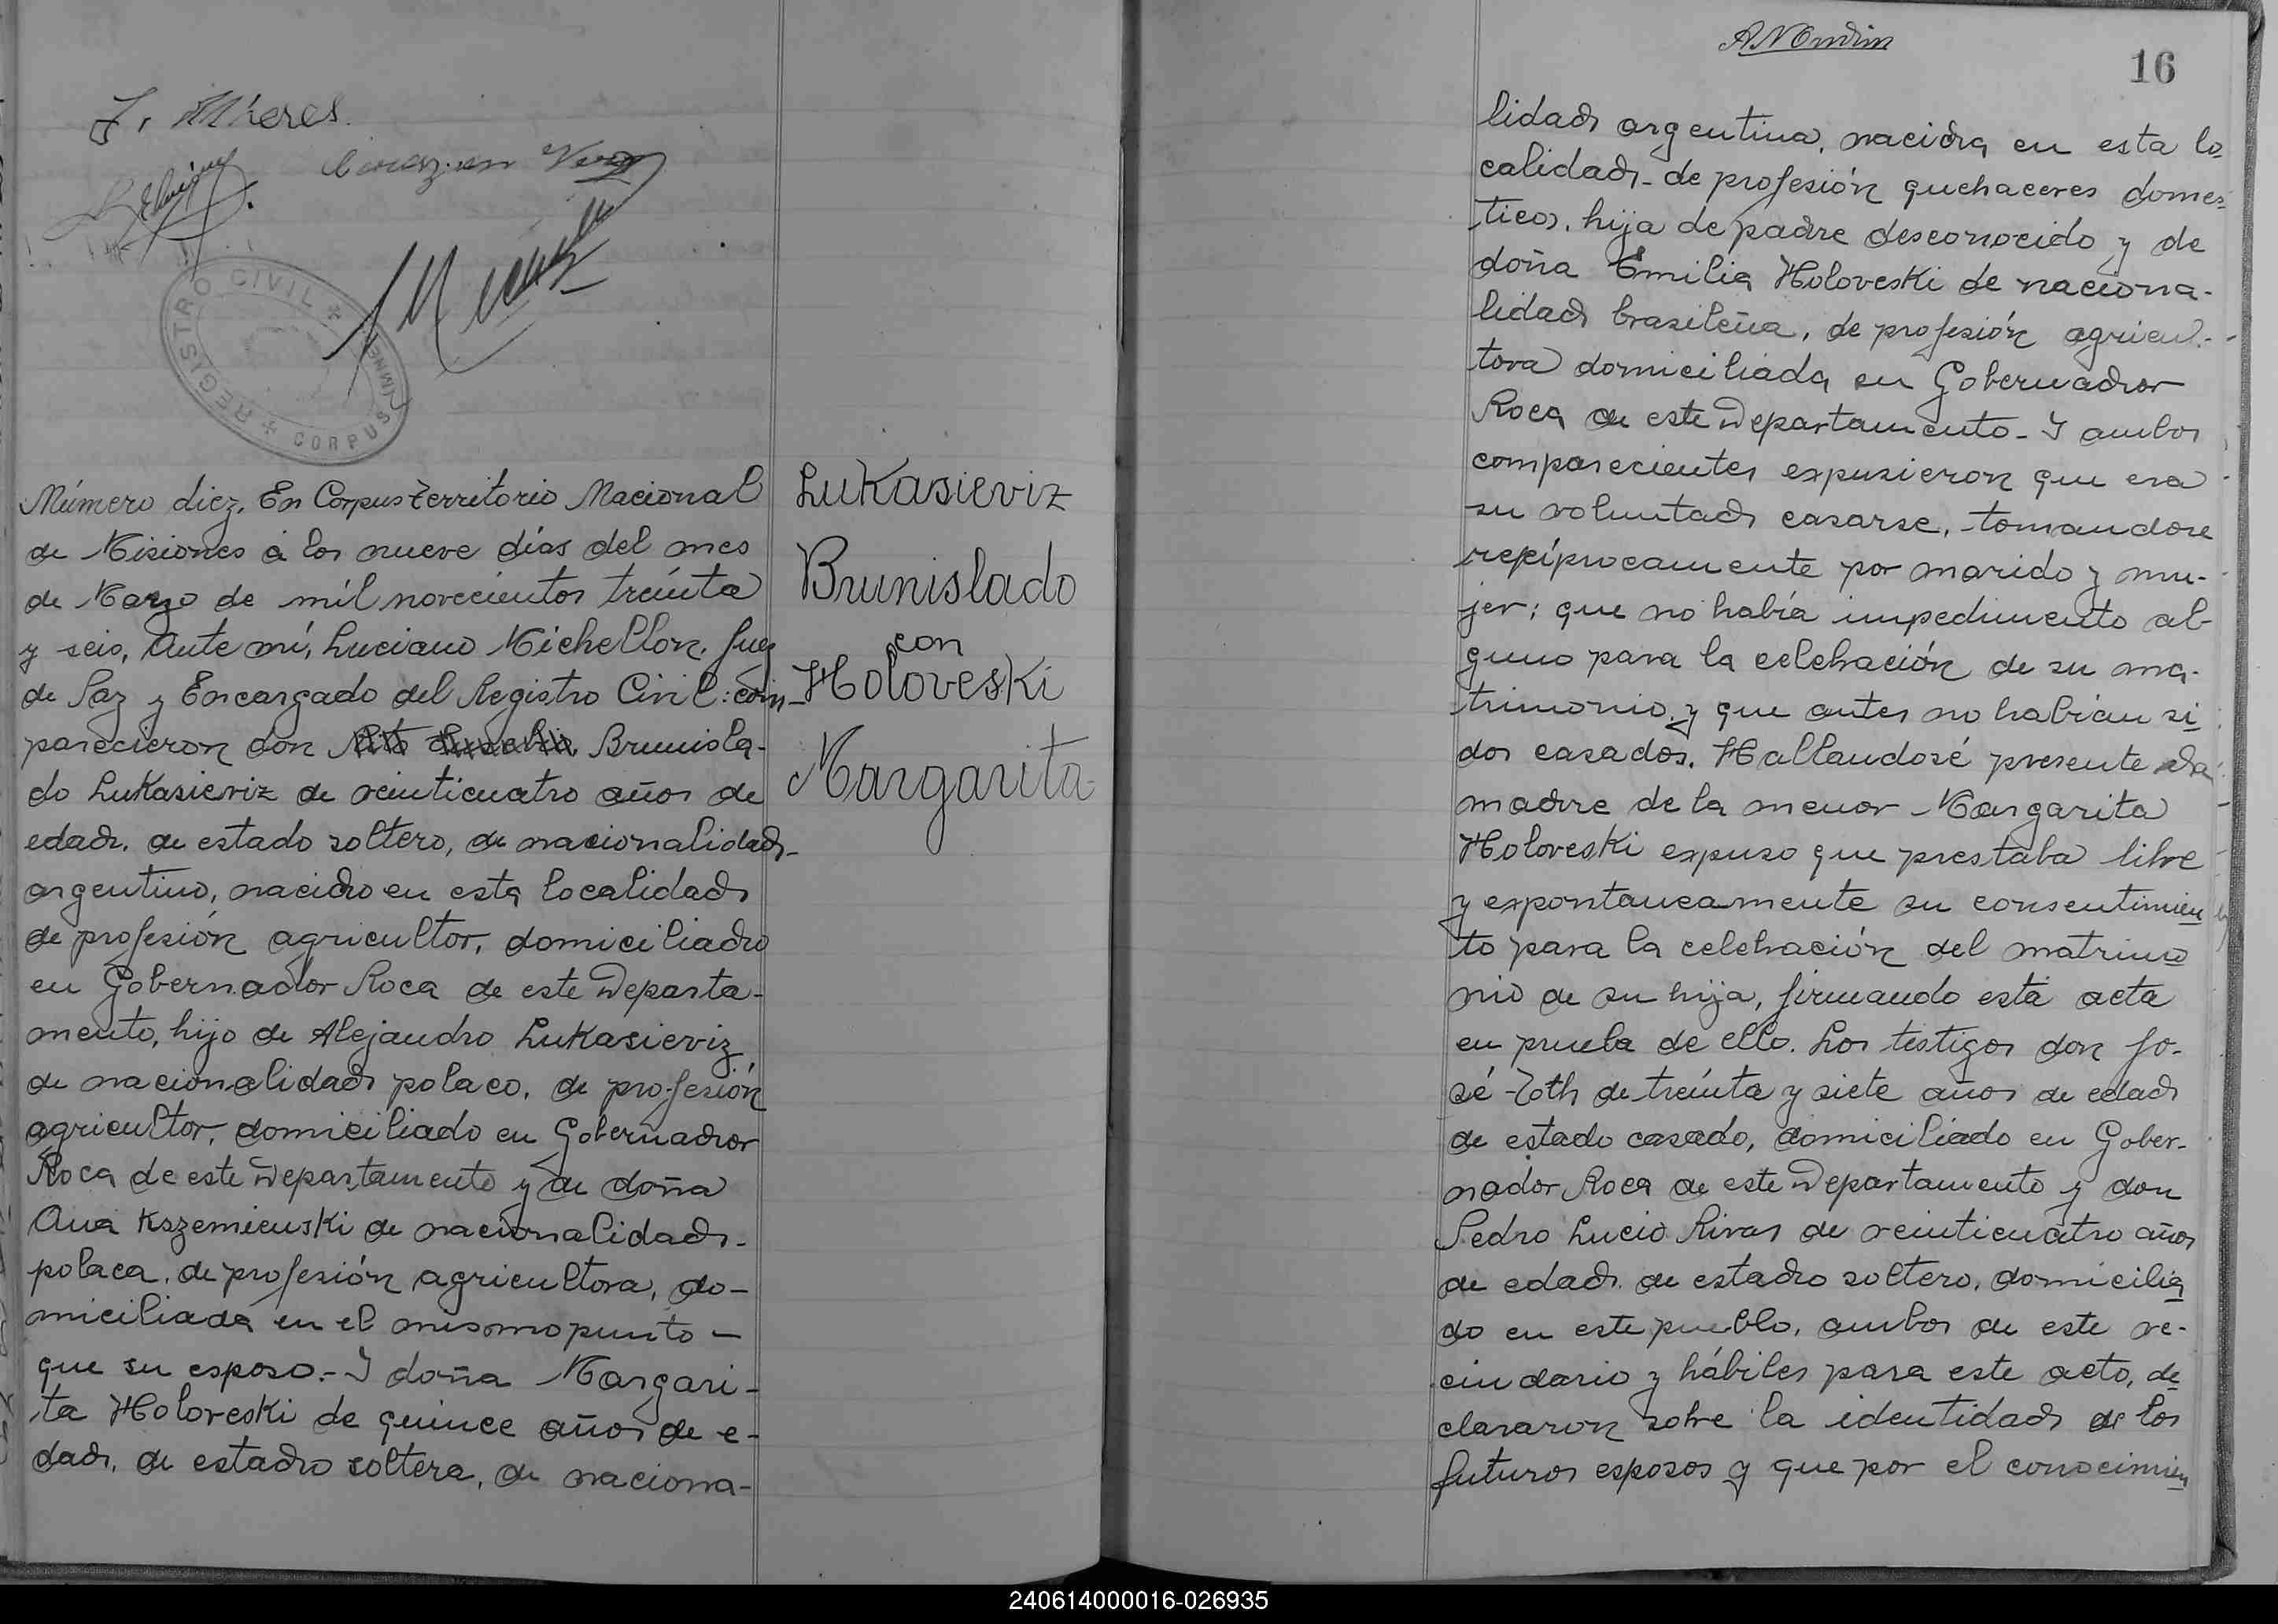 J.
REGISTRO CIVIL
CORPUS
Número diez, En Corpus Territorio Nacional
de Misiones á los nueve días del mes
de Marzo de míl novecientos treinta
y seis, Ante mí, Luciano Michellon, Juez
de Paz y Encargado del Registro Civil: com-
parecieron don Brunisla-
do Lukasieviz de veinticuatro años de
edad, de estado soltero, de nacionalidad-
argentino, nacido en esta localidad
de profesión agricultor, domiciliado
en Gobernador Roca de este Departa-
mento, hijo de Alejandro Lukasieviz,
de nacionalidad polaco, de profesión
agricultor, domiciliado en Gobernador
Roca de este Departamento y de doña
Ana Kszemieuski de nacionalidad-
polaca, de profesión agricultora, do-
miciliada en el mismo punto -
que su esposo.- Y doña Margari-
ta Holoveski de quince años de e-
dad, de estado soltera, de naciona-
Lukasieviz
Brunislado
con
Holoveski
Margarita
16
lidad argentina, nacida en esta lo-
calidad- de profesión quehaceres domes-
ticos, hija de padre desconocido y de
doña Emilia Holoveski de naciona-
lidad brasileña, de profesión agricul-
tora domiciliada en Gobernador
Roca de este Departamento- Y ambos
comparecientes expusieron que era
su voluntad casarse, tomandose
recíprocamente por marido y mu-
jer; que no había impedimento al-
guno para la celebración de su ma-
trimonio, y que antes no habían si
dos casados. Hallandosé presente la
madre de la menor Margarita
Holoveski expuso que prestaba libre
y expontaneamente su consentimien
to para la celebración del matrimo
nio de su hija, firmando esta acta
en prueba de ello. Los testigos don Jo-
sé Toth de treinta y siete años de edad
de estado casado, domiciliado en Gober-
nador Roca de este Departamento y don
Pedro Lucio Rivas de veinticuatro años
de edad, de estado soltero, domicilia
do en este pueblo, ambos de este ve-
cindario y hábiles para este acto, de
clararon sobre la identidad de los
futuros esposos y que por el conocimien
240614000016-026935